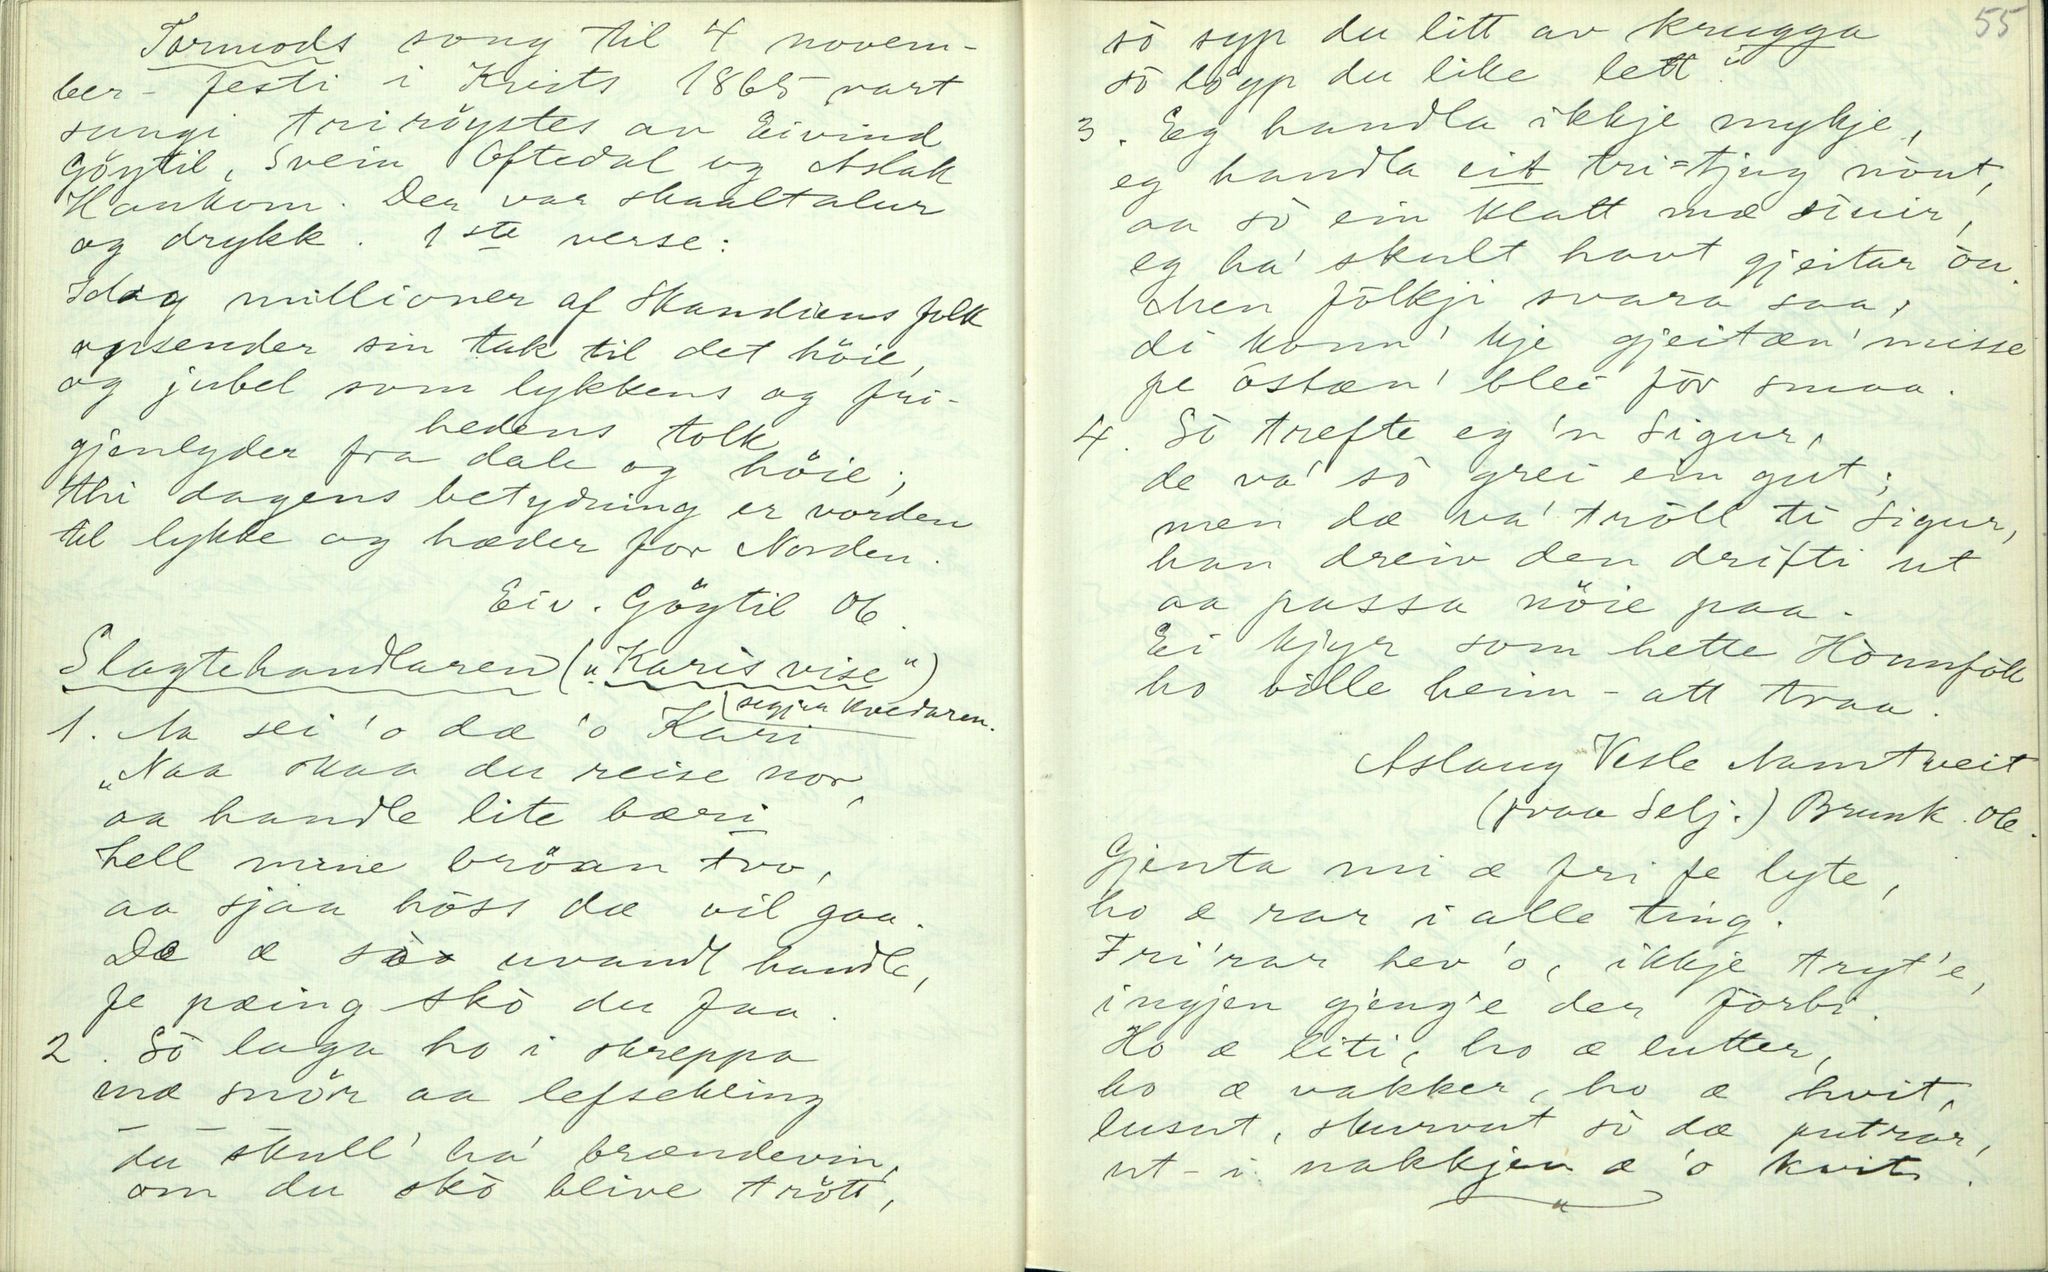 Tormods song til 4 novem-
ber-festi i Krists 1865 vart
sungi triröystes av Eivind
Göytil, Svein Oftedal og Aslak
Haukom. Der var skaaltalur
og drykk. 1ste verse:
Idag millioner af Skandiens folk
opsender sin tak til det höie,
og jubel som lykkens og fri-
hedens tolk
gjenlyder fra dale og höie;
thi dagens betydning er vorden
til lykke og hæder for Norden.
Eiv. Göytil 06.
Slagtehandlaren („Karis vise“)
segjer kvedaren.
1. Aa sei 'o dæ 'o Kari
„Naa skaa du reise nor,
aa handle lite bæri
hell mine bröan tvo,
aa sjaa höss dæ vil gaa.
De æ sò uvandt handle,
fe pæing skò du faa.
2. Sò laga ho i skreppa
mæ smör aa lefsekling
du skull' ha' brændevin,
om du skò blive trött,
55
sò syp du litt av krugga
sò löyp du like lett“
3. Eg handla ikkje mykje,
eg handla eit tri=tjug nòut,
aa sò ein klatt mæ sìuir,
eg ha' skult havt gjeitar òu.
Men fòlkji svara saa,
di konn' kje gjeitæn' misse
fe òstæn' blei fòr smaa.
4. Sò trefte eg 'n Sigur,
de va' sò grei ein gut;
men dæ va' tròll ti Sigur,
han dreiv den drifti ut
aa passa nöie paa.
Ei kjyr som hette Hònnfòll
ho ville heim-att traa.
Aslaug Vesle Namtveit
(fraa Selj.) Brunk. 06.
Gjenta mi æ fri fe lyte,
ho æ rar i alle ting.
Fri'rar hev 'o, ikkje tryt'e,
ingjen gjeng'e der fòrbi.
Ho æ liti, ho æ lutter,
ho æ vakker, ho æ hvit,
lusut, skurvut sò dæ putrar,
ut-i nakkjen æ 'o kvit.